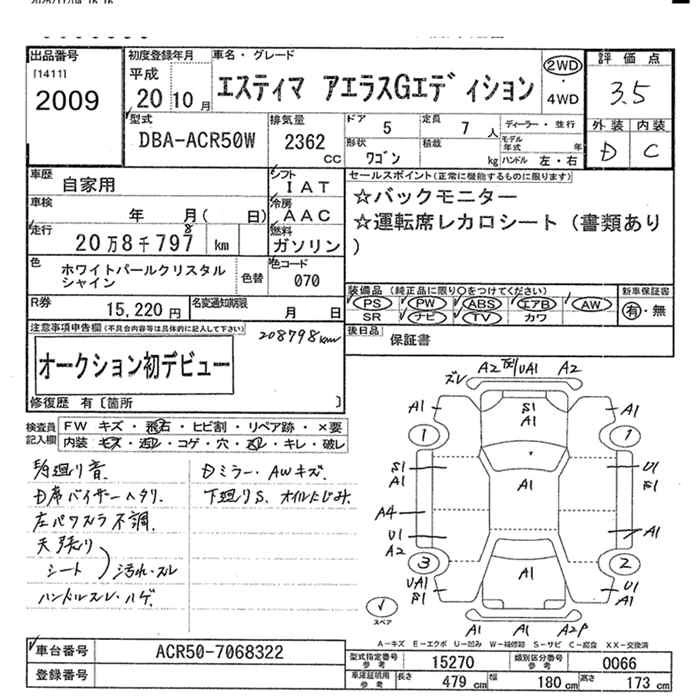 出品番号
[1411]
2009
初度登録年月
平成
20 10 月
車名・グレード
エスティマ アエラスGエディション
2WD
4WD
評価点
3.5
外装 内装
D C
型式
DBA-ACR50W
排気量
2362
CC
ドア 5
定員 7 人
ディーラー・並行
形状
ワゴン
積載 kg
モデル年式 年
ハンドル 左・右
車歴
自家用
シフト
IAT
車検
年 月( 日)
冷房
AAC
走行
20万8千797 km
8
燃料
ガソリン
色
ホワイトパールクリスタル
シャイン
色替
色コード
070
R券
15,220 円
名変通知期限
月 日
セールスポイント(正常に機能するものに限ります)
☆バックモニター
☆運転席レカロシート(書類あり
)
装備品(純正品に限り○をつけてください)
PS PW ABS エアB AW
SR ナビ TV カワ
新車保証書
有・無
後日品
保証書
注意事項申告欄(不具合内容等は具体的に記入して下さい)
208798km
オークション初デビュー
修復歴 有〔箇所 〕
検査員
記入欄
FW キズ・飛石・ヒビ割・リペア跡・×要
内装 キズ・汚レ・コゲ・穴・スレ・キレ・破レ
足廻り音
D席バイザーヘタリ.
左パワスラ不調.
天張り
シート
汚れ・スレ
ハンドルスレ・ハゲ.
Dミラー・AWキズ.
下廻りS、オイルにじみ
ズレ A2 UA1 A2
A1 S1 A1 A1
1 1
S1 A1 U1 S1
A1
A4
U1 A2 A1
3 2
UA1 S1 A1 U1 A1
スペア
A1 A1 A2P
A-キズ E-エクボ U-凹み W-補修跡 S-サビ C-腐食 XX-交換済
車台番号
ACR50-7068322
登録番号
型式指定番号
参考
15270
類別区分番号
参考
0066
車庫証明用
参考
長さ 479 cm
幅 180 cm
高さ 173 cm